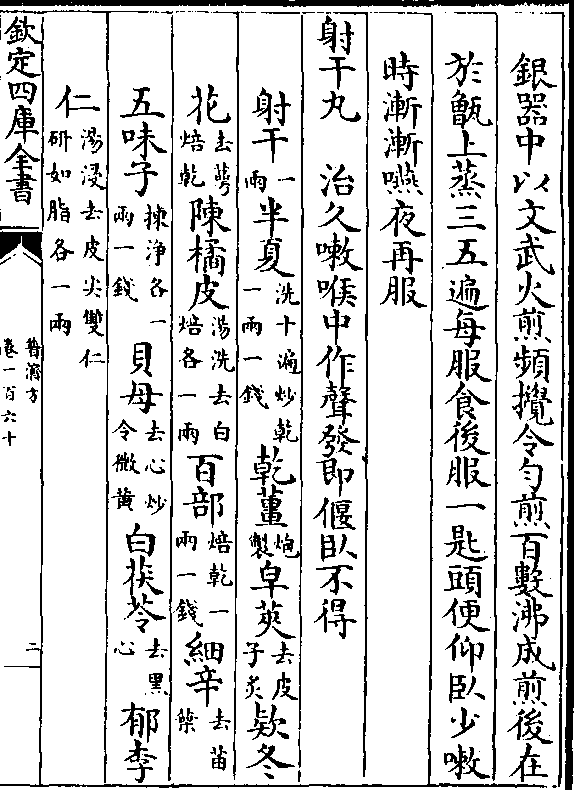 銀器中以文武火煎頻攪令勻煎百數沸成煎後在
於甑上蒸三五遍每服食後服一匙頭便仰臥少嗽
時漸漸嚥夜再服
射干丸　治久嗽喉中作聲發即偃臥不得
射干一兩半夏洗十遍炒乾一兩一錢乾薑炮製皁莢去皮子炙欵冬
花去萼焙乾陳橘皮湯洗去白焙各一兩百部焙乾一兩一錢細辛去苗葉
五味子揀淨各一兩一錢貝母去心炒令微黃白茯苓去黑心郁李
仁湯浸去皮尖雙仁研如脂各一兩
欽定四庫全書
普濟方
卷一百六十
二